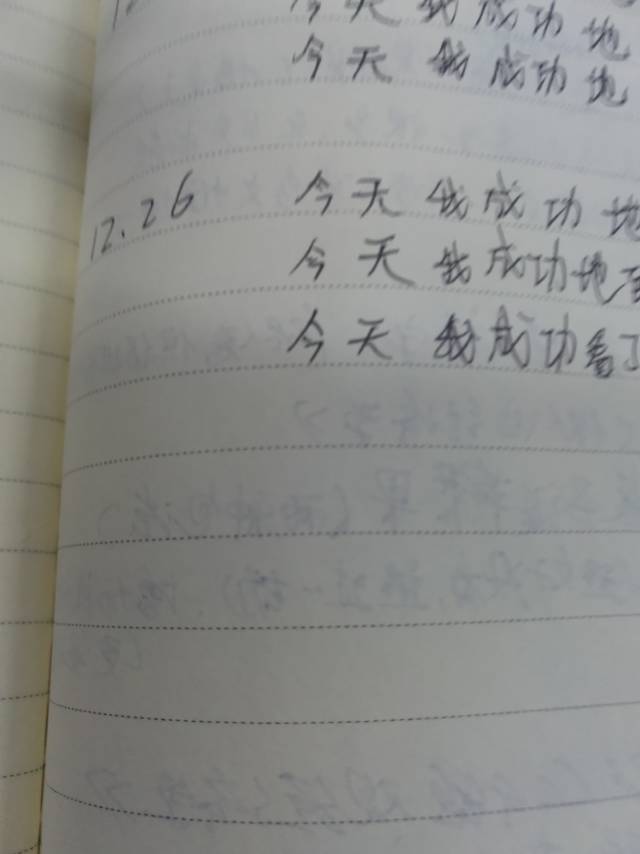 今天我成功地
今天我成功地
12.26 今天我成功地
今天我成功地
今天我成功看了